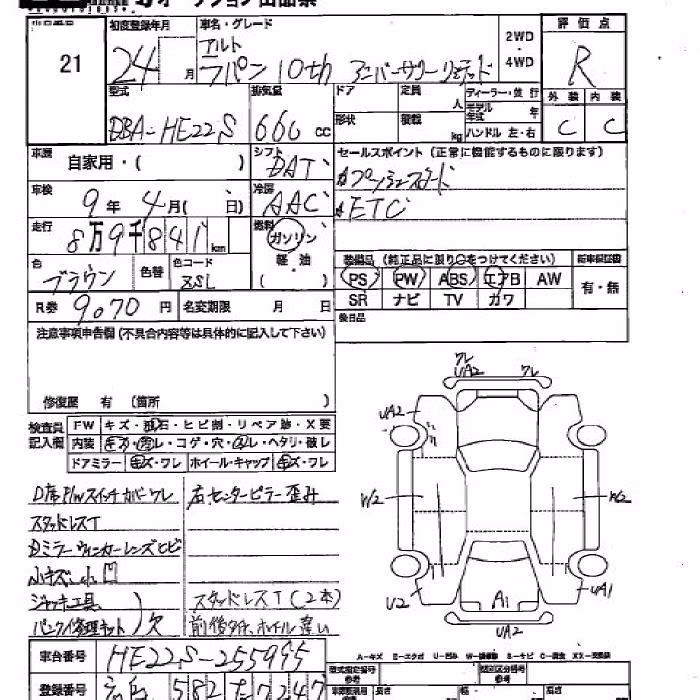 オークション出品票
21
初度登録年月
24 月
車名・グレード
アルト
ラパン 10th アニバーサリーリミテッド
2WD
・
4WD
評価点
R
外装 内装
C C
型式
DBA-HE22S
排気量
660 cc
ドア
定員 人
ディーラー・並行
モデル年式 年
形状
積載 kg
ハンドル 左・右
車歴
自家用・( )
シフト
DAT
セールスポイント (正常に機能するものに限ります)
プッシュスタート
ETC
車検
9年 4月( 日)
冷房
AAC
走行
8万9千841 km
燃料
ガソリン
軽・油
( )
色
ブラウン
色替
色コード
ZSL
装備品 (純正品に限り○をつけてください)
新車保証書
PS PW ABS エアB AW
SR ナビ TV カワ
有・無
R券 9070 円
名変期限 月 日
後日品
注意事項申告欄 (不具合内容等は具体的に記入して下さい)
修復歴 有 (箇所 )
検査員記入欄
FW キズ・飛石・ヒビ割・リペア跡・X要
内装 キズ・汚れ・コゲ・穴・スレ・ヘタリ・破レ
ドアミラー キズ・ワレ ホイール・キャップ キズ・ワレ
D席P/Wスイッチカバーワレ
右センターピラー歪み
スタッドレスT
ミラーウィンカーレンズヒビ
小キズ・小凹
ジャッキ工具
パンク修理キット
欠
スタッドレスT(2本)
前後タイヤ、ホイール違い
ワレ
UA2
ワレ
UA2
W2
W2
U2
A1
UA1
UA2
車台番号 HE22S-255995
登録番号 582 7247
A-キズ E-エクボ U-凹み W-補修跡 S-サビ C-腐食 XX-交換済
型式指定番号
参考
類別区分番号
参考
長さ
幅
高さ